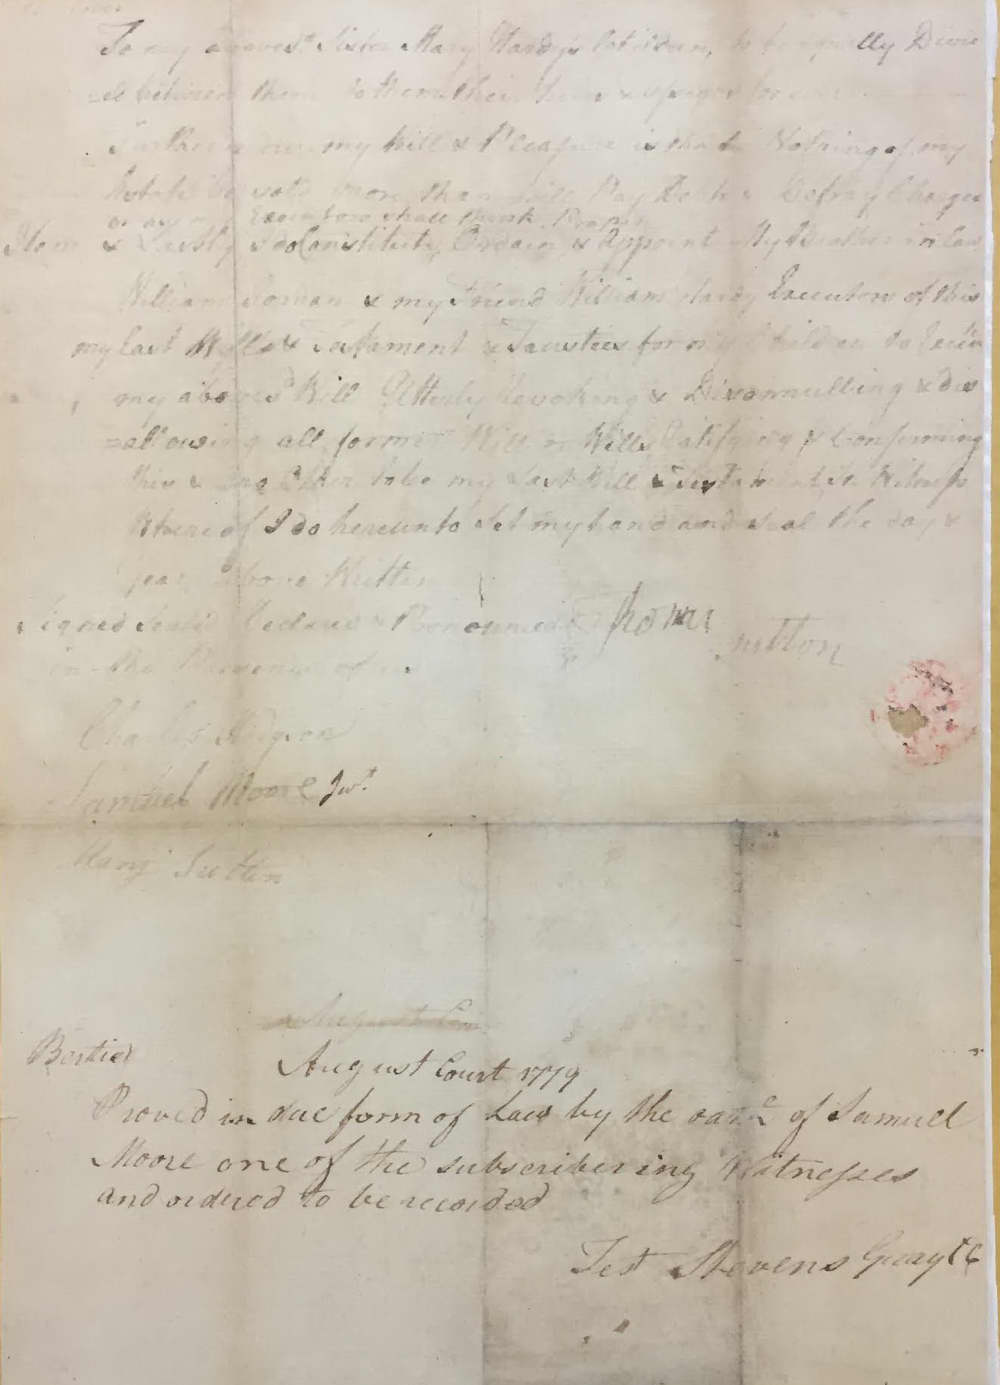 To my Sister Mary Hardy's Children, to be equally Devid
=ed between them to them their heirs & for
Further my Will & Pleasure is that Nothing of my
Estate be sold more than will Pay Debts & Defray Charges
or as my Executors shall think Proper
Item & Lastly I do Constitute, Ordain & Appoint My Brother in law
William & my Friend William Hardy Executors of this
my last Will & Testament & Trustees for my Children to
my above sd Will Utterly Revoking & Disannulling & dis
=allowing all former Will or Wills Ratifying & Confirming
this & no Other to be my Last Will & Testament In Witness
Whereof I do hereunto Set my hand and Seal the day &
year above Written
Signed Seald Declared & Pronounced Thomas Sutton
in the Presence of us
Charles
Samuel Moore Junr
Mary Sutton
August Cou
Bertie
August Court 1779
Proved in due form of Law by the oath of Samuel
Moore one of the subscribering Witnesses
and ordered to be recorded
Test Stevens Gray CC